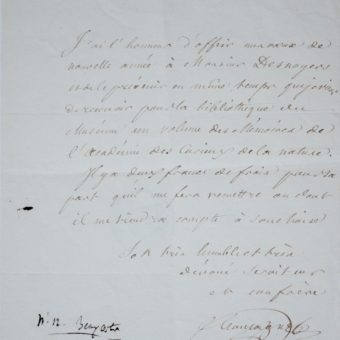 J'ai l'honneur d'offrir mes vœux de
nouvelle année à Monsieur Desnoyers
et de le prévenir en même temps que je viens
de recevoir pour la bibliothèque du
Muséum un volume des Mémoires de
l'Académie des Curieux de la nature.
Il y a deux francs de frais pour la
part qu'il me fera remettre ou dont
il me tiendra compte à
Son très humble et très
dévoué serviteur
et confrère